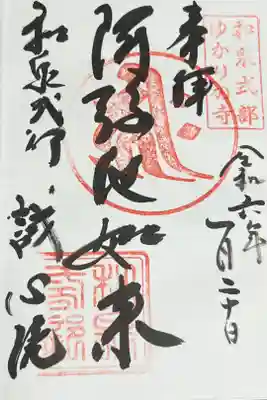 和泉式部
ゆかりの寺
奉拝
令和六年
一月二十日
阿弥陀如来
和泉式部 誠心院